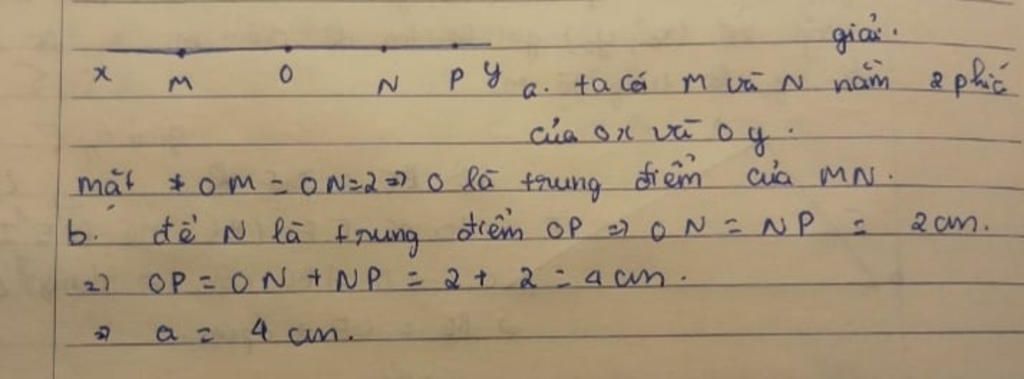 giải.
x M O N P y
a. ta có M và N nằm 2 phía
của Ox và Oy.
mặt ≠ OM = ON = 2 => O là trung điểm của MN.
b. để N là trung điểm OP => ON = NP = 2cm.
=> OP = ON + NP = 2 + 2 = 4 cm.
=> a = 4 cm.